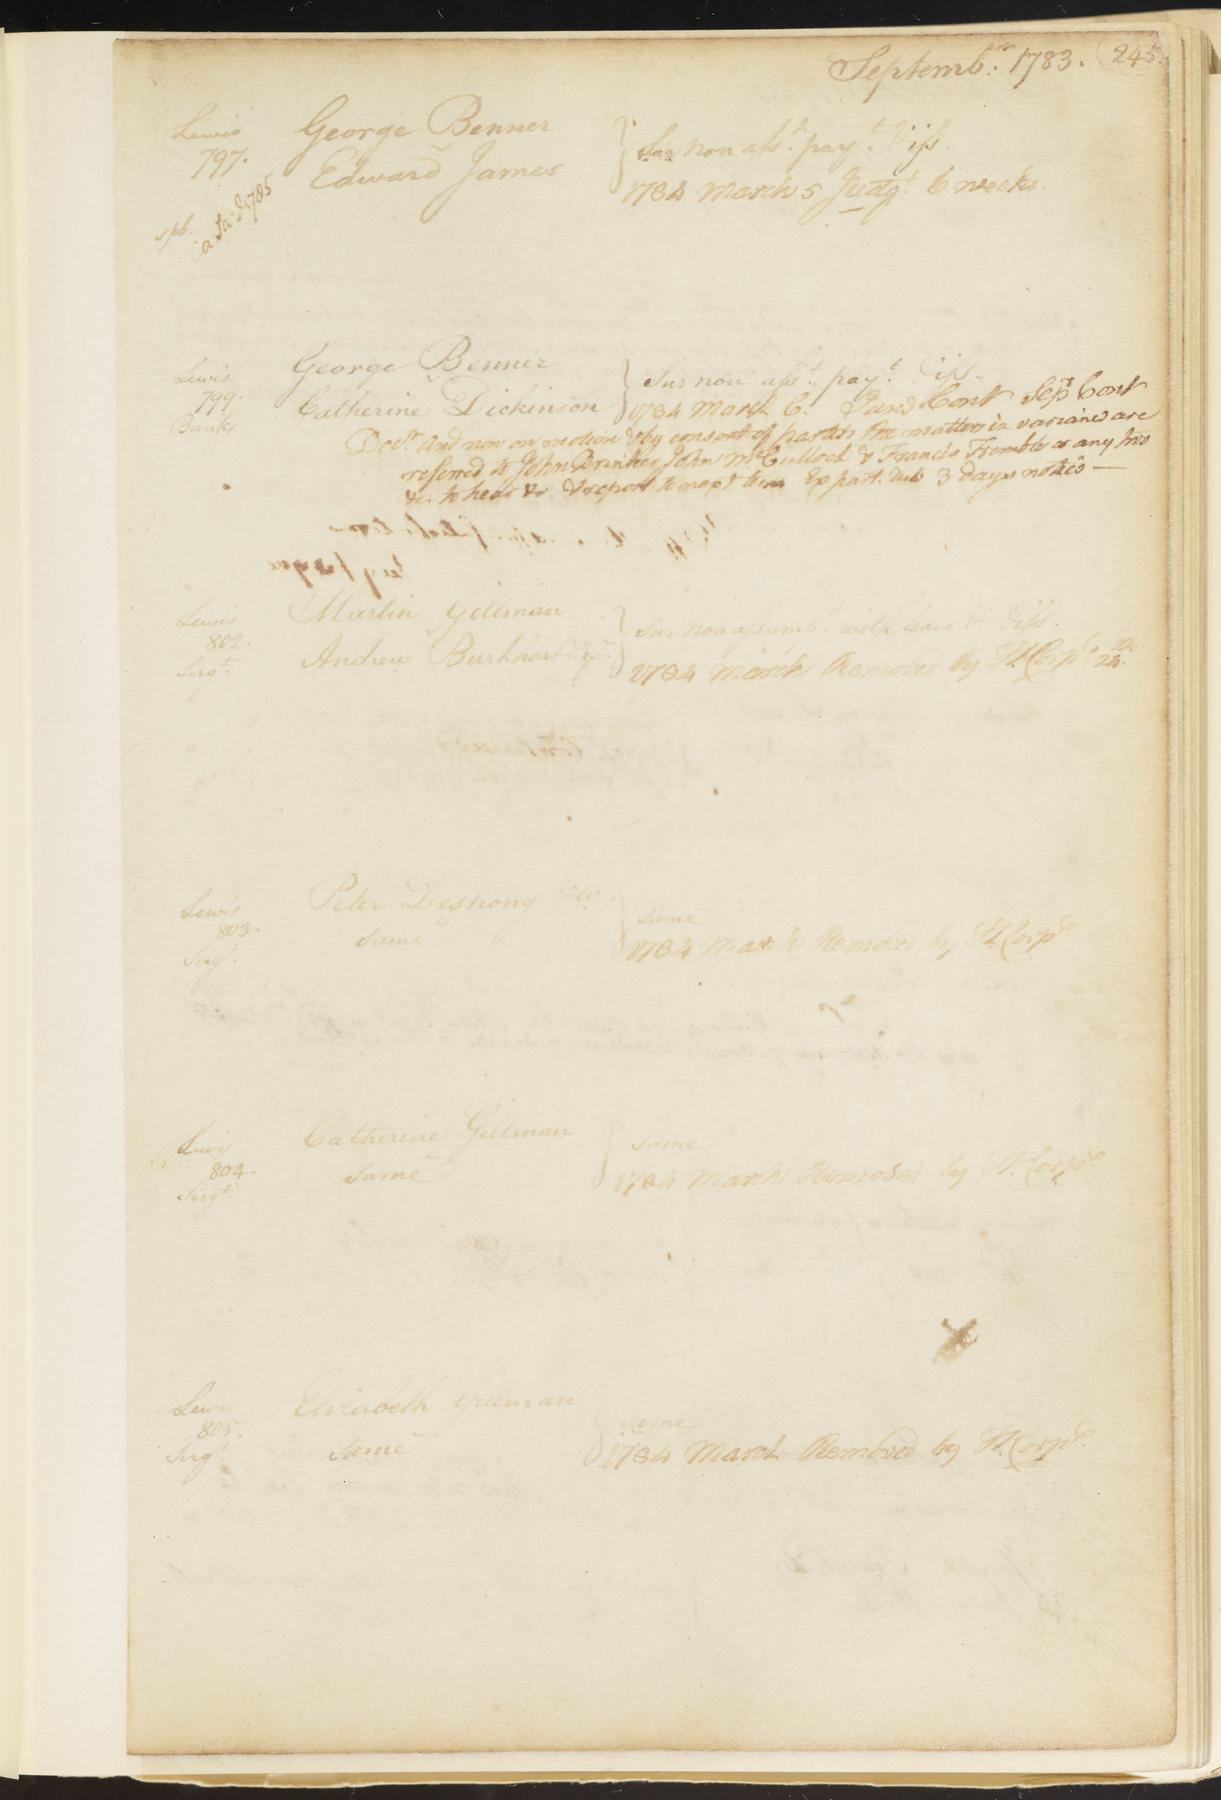 Septemb.r 1783. 245
Lewis George Benner
Sur non ass.t pay.t & Iss.
797. Edward James
1784 March 5 Judg.t 6 weeks.
spb. Ca Sa: J 1785
Lewis George Benner
Sur non ass.t pay.t & Iss.
799. Catherine Dickinson
1784 March C. June Cont Sepr Cont
Bank
Decr. And now on motion & by consent of parties the matters in variance are
referred to John Drinker John McCulloch & Francis Tremble or any two
&c. to hear &c & report to next term Ex part. Rule 3 days notice —
Lewis Martin Gillman
Sur non assumps.t with leave &c & Iss.
802. Andrew Burkhart
1784 March Removed by H. Corp.s 24.
Serg.t
Lewis Peter Deshong
same
803. same
1784 March Removed by H. Corp.s
Serg.t
Lewis Catherine Gilman
same
804. same
1784 March Removed by H. Corp.s
Serg.t
Lewis Elizabeth Gilman
same
805. same
1784 March Removed by H. Corp.s
Serg.t